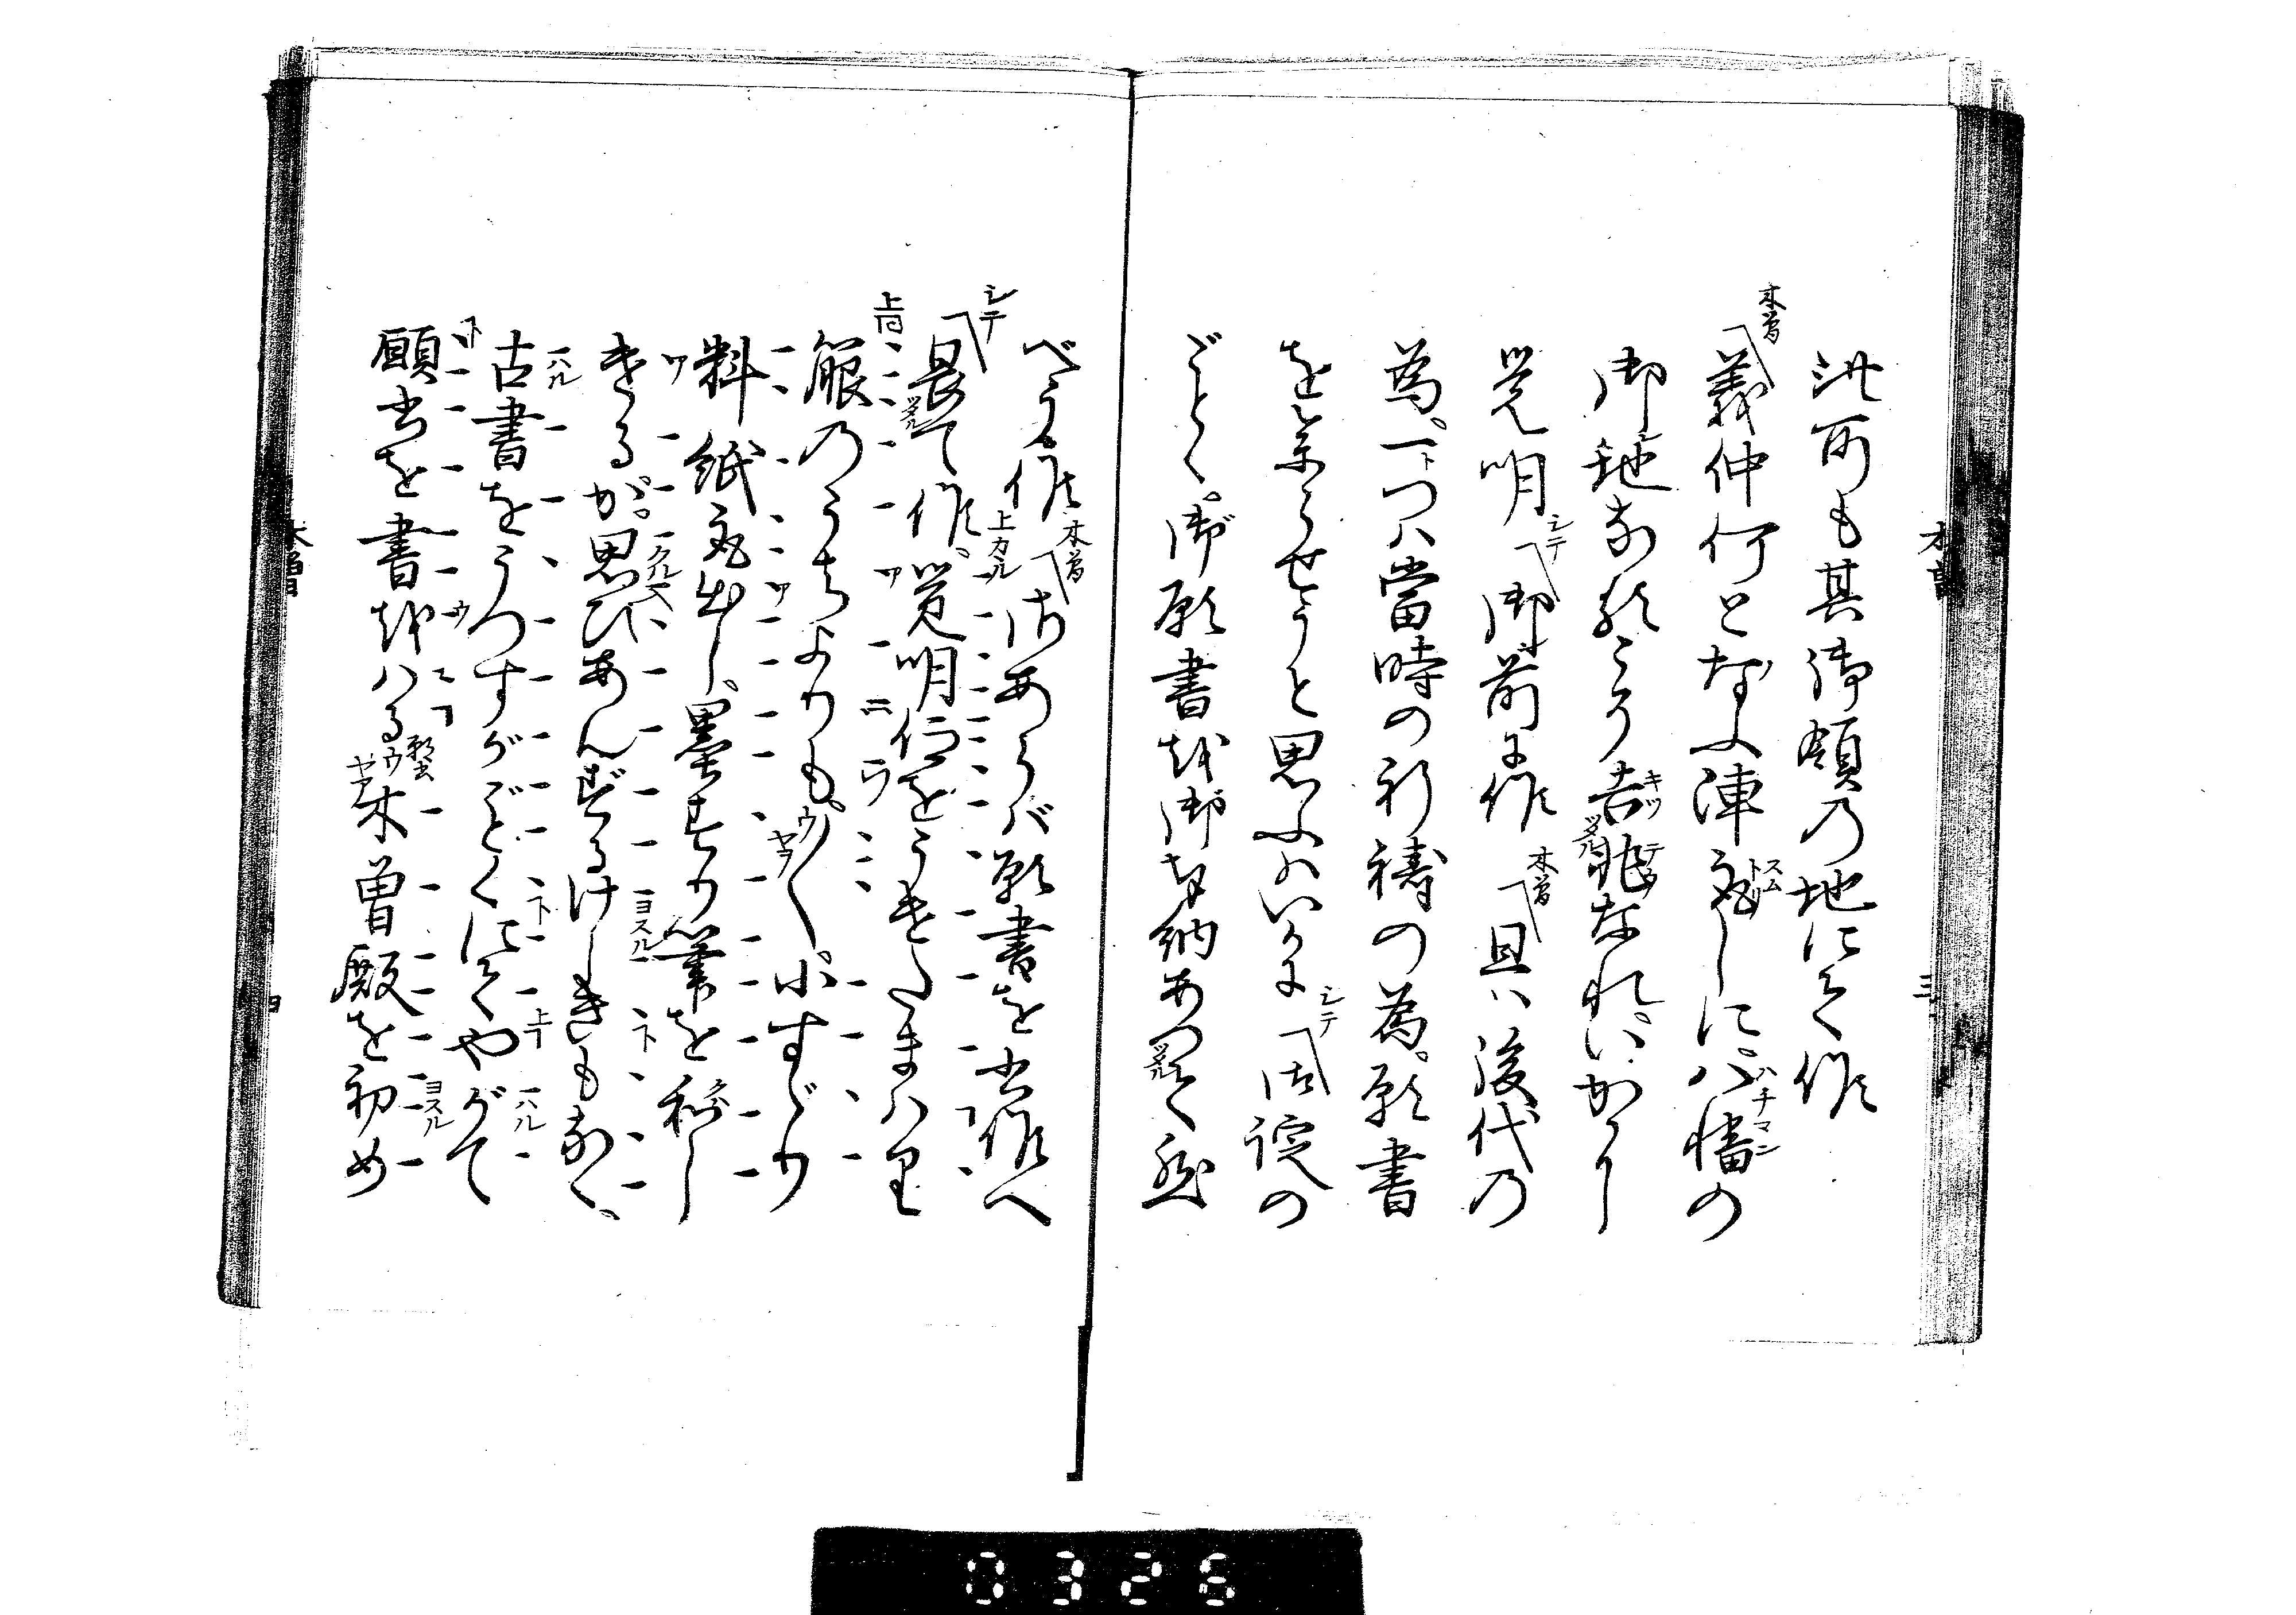 此所も其御領の地にて候
義仲何となふ陣取しに。八幡の
御地なりけるこそ吉兆なれ。いかに
覚明
御前に候
且ハ後代の
為。一つハ當時の祈祷の為。願書
をまゐらせうと思ふハいかに
御諚の
ごとく。御願書を御奉納あつて然
べう候
さあらバ願書を書候へ
畏て候。覚明仰をうけたまハり
箙のうちよりも。小すゞり
料紙取出し。墨すり筆を和し
けるが。思ひあんずるけしきもなく、
古書をうつすがごとくにてやがて
願書を書をハる
木曽殿を初め
木曽
三
木曽
四
0326